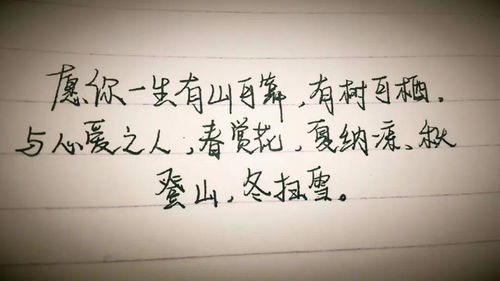 愿你一生有山可靠,有树可栖。
与心爱之人,春赏花,夏纳凉、秋
登山,冬扫雪。